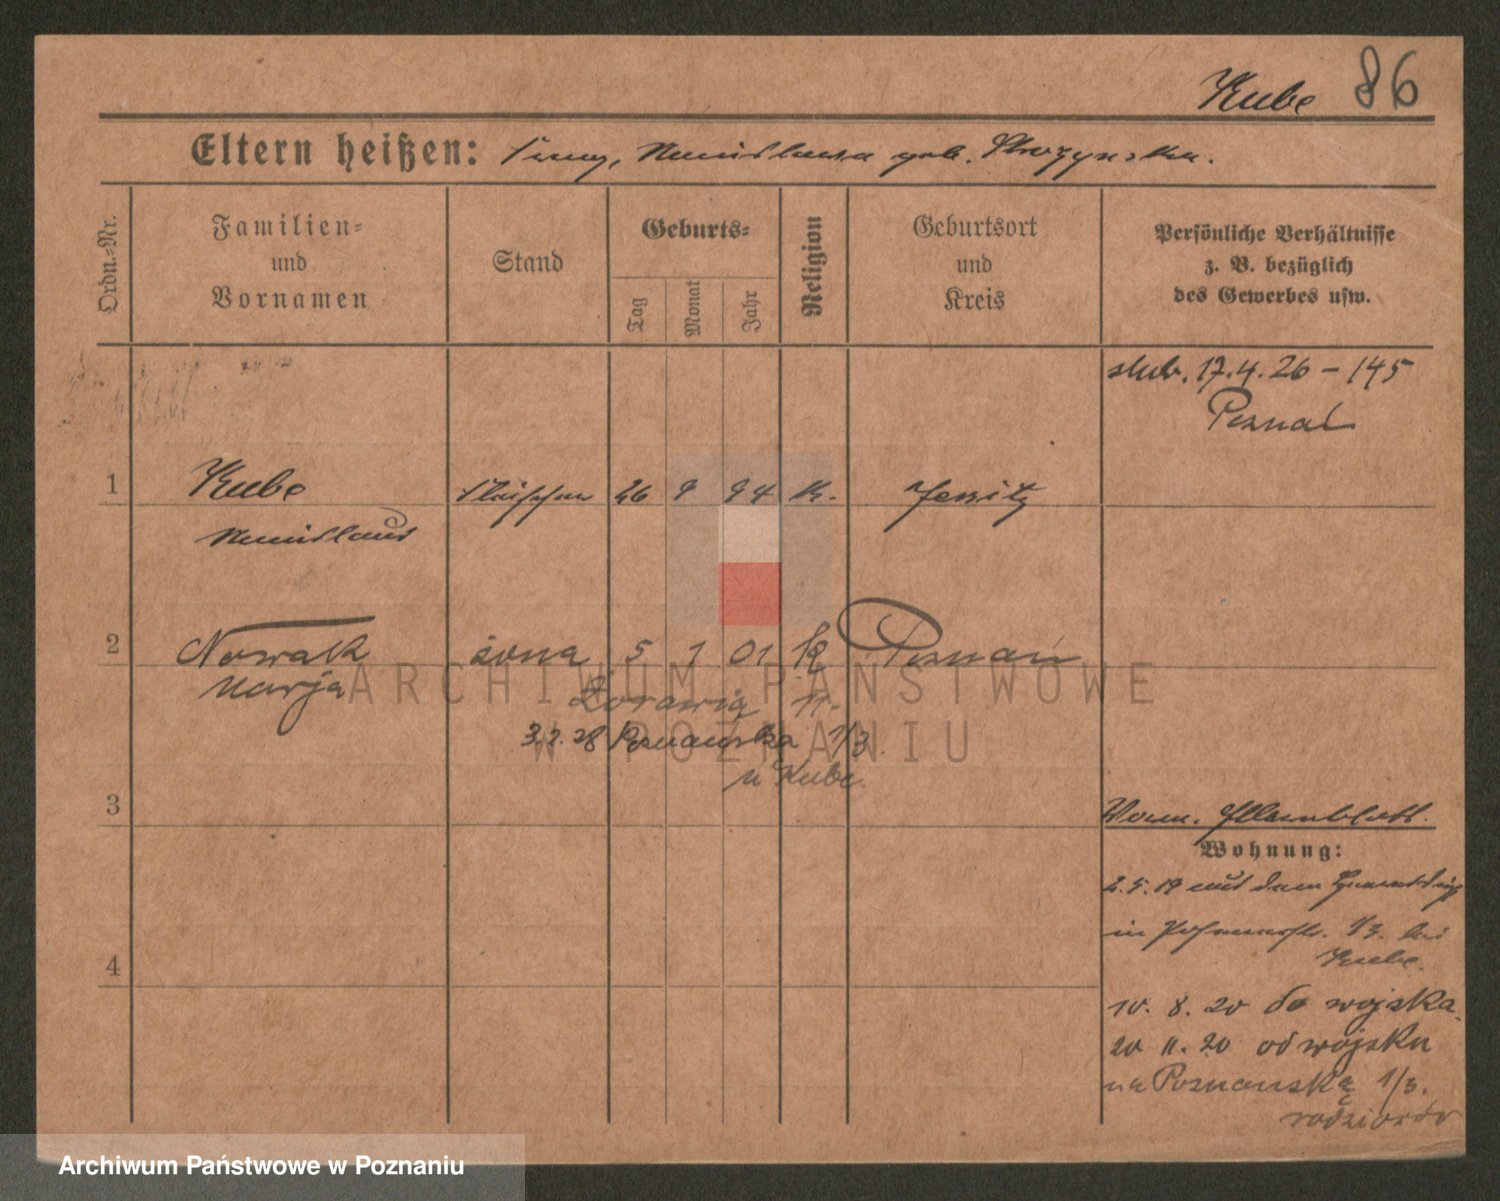 Kube 86
Eltern heißen: geb.
Ordn.-Nr.
Familien-
und
Vornamen
Stand
Geburts-
Tag
Monat
Jahr
Religion
Geburtsort
und
Kreis
Persönliche Verhältnisse
z. B. bezüglich
des Gewerbes usw.
ślub. 17.4.26 - 145
Poznań
1 Kube 26 9 94 K. Jersitz
2 Nowak żona 5 1 01 K Poznań
Marja
Żórawia 11.
3.2.28 Poznańska 1/3.
u Kube.
3
Wohnung:
2.5.19 aus dem
in Posenerstr. 1/3. bei
Kube.
4
10. 8. 20 do wojska.
20 11. 20 od wojska
na Poznańską 1/3.
rodziców
ARCHIWUM PAŃSTWOWE
W POZNANIU
Archiwum Państwowe w Poznaniu